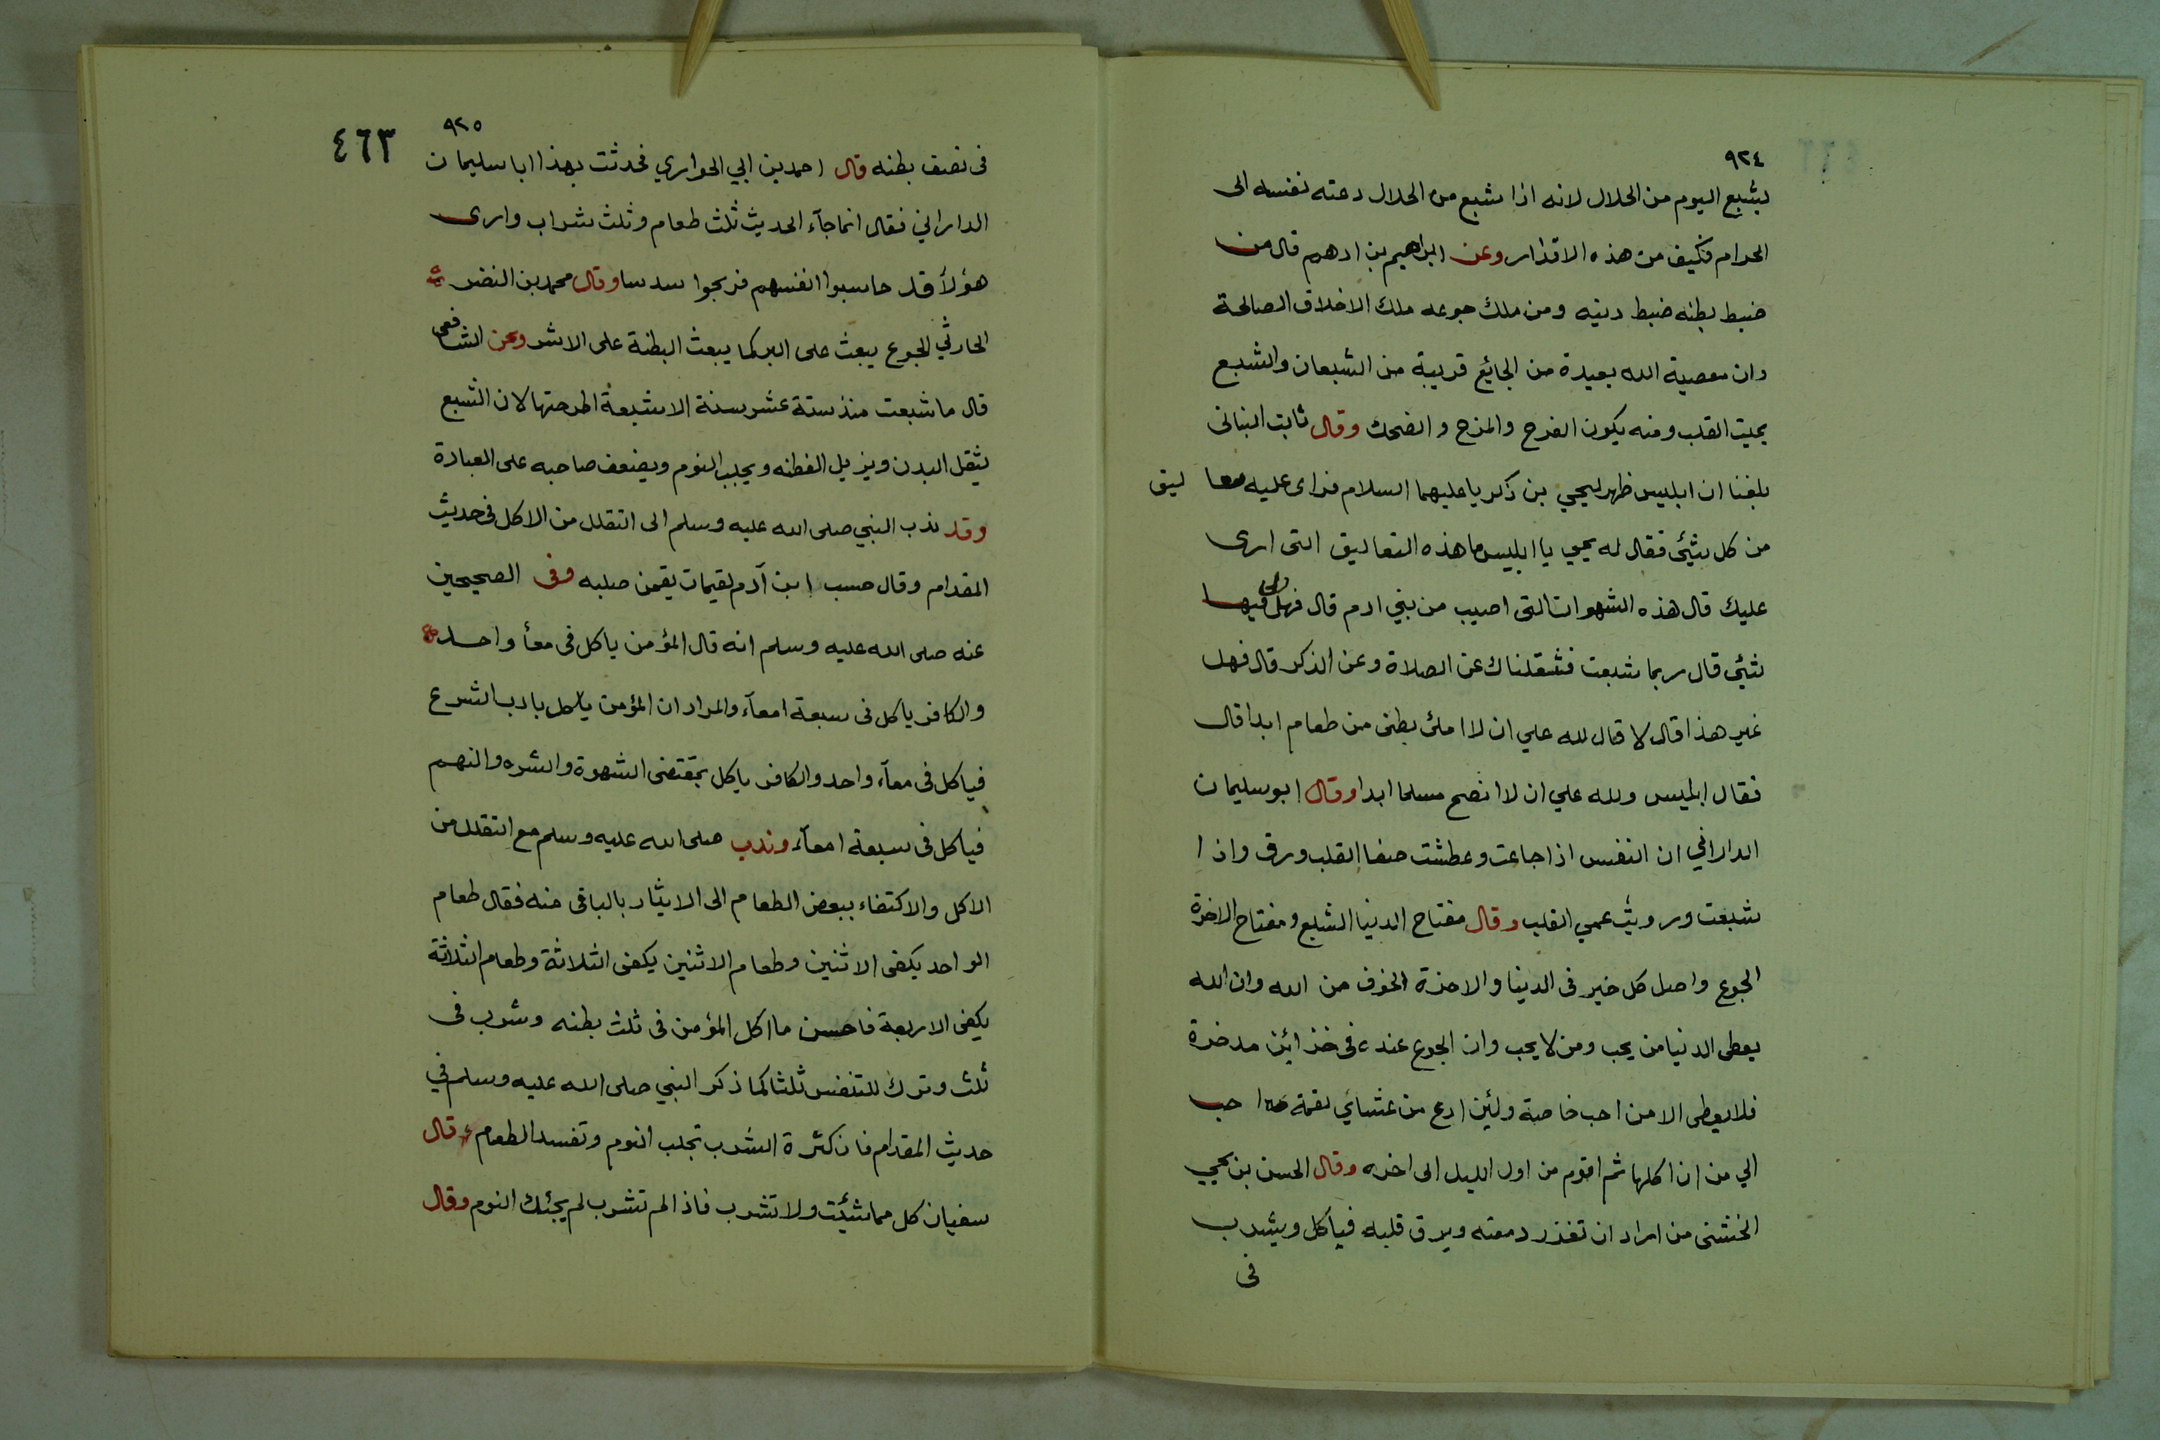 ٩٢٤
يشبع اليوم من الحلال لانه اذا شبع من الحلال دعته نفسه الى
الحرام فكيف من هذه الاقذار وعن ابراهيم بن ادهم قال من
ضبط بطنه ضبط دينه ومن ملك جوعه ملك الاخلاق الصالحة
وان معصية الله بعيدة من الجايع قريبة من الشبعان والشبع
يميت القلب ومنه يكون الفرح والمزح والضحك وقال ثابت البنانى
بلغنا ان ابليس ظهر ليحيي بن زكريا عليهما السلام فراى عليه معاليق
من كل شيئ فقال له يحيى يا ابليس ما هذه التعاليق التى ارى
عليك قال هذه الشهوات التى اصيب من بني ادم قال فهل لى فيها
شيئ قال ربما شبعت فثقلناك عن الصلاة وعن الذكر قال فهل
غير هذا قال لا قال لله علي ان لا املئ بطنى من طعام ابدا قال
فقال ابليس ولله علي ان لا انصح مسلما ابدا وقال ابو سليمان
الداراني ان النفس اذا جاعت وعطشت صفا القلب ورق واذا
شبعت ورويت عمي القلب وقال مفتاح الدنيا الشبع ومفتاح الاخرة
الجوع واصل كل خير فى الدنيا والاخرة الخوف من الله وان الله
يعطى الدنيا من يحب ومن لا يحب وان الجوع عنده فى خزائن مدخرة
فلا يعطى الا من احب خاصة ولئن ادع من عشائي لقمة احب
الي من ان اكلها ثم اقوم من اول الليل الى اخره وقال الحسن بن يحيي
الخشنى من اراد ان تغزر دمعته ويرق قلبه فياكل ويشرب
فى
٩٢٥
٤٦٣
فى نصف بطنه قال احمد بن ابي الحواري فحدثت بهذا ابا سليمان
الداراني فقال انما جآء الحديث ثلث طعام وثلث شراب وارى
هؤلآ قد حاسبوا انفسهم فربحوا سدسا وقال محمد بن النضر
الحارثي الجوع يبعث على البر كما يبعث البطنة على الاشر وعن الشافعى
قال ما شبعت منذ ستة عشر سنة الا شبعة اطرحتها لان الشبع
يثقل البدن ويزيل الفطنه ويجلب النوم ويضعف صاحبه على العبادة
وقد ندب النبي صلى الله عليه وسلم الى التقلل من الاكل فى حديث
المقدام وقال حسب ابن آدم لقيمات يقمن صلبه وفى الصحيحين
عنه صلى الله عليه وسلم انه قال المؤمن ياكل فى معآ واحد
والكافر ياكل فى سبعة امعآء والمراد ان المؤمن ياكل بادب الشرع
فياكل فى معآء واحد والكافر ياكل بمقتضى الشهوة والشره والنهم
فياكل فى سبعة امعآء وندب صلى الله عليه وسلم مع التقلل من
الاكل والاكتفاء ببعض الطعام الى الايثار بالباقى منه فقال طعام
الواحد يكفى الاثنين وطعام الاثنين يكفى الثلاثة وطعام الثلاثة
يكفى الاربعة فاحسن ما اكل المؤمن فى ثلث بطنه وشرب فى
ثلث وترك للتنفس ثلثا كما ذكر النبي صلى الله عليه وسلم في
حديث المقدام فان كثرة الشرب تجلب النوم وتفسد الطعام قال
سفيان كل مما شئت ولا تشرب فاذا لم تشرب لم يجئك النوم وقال